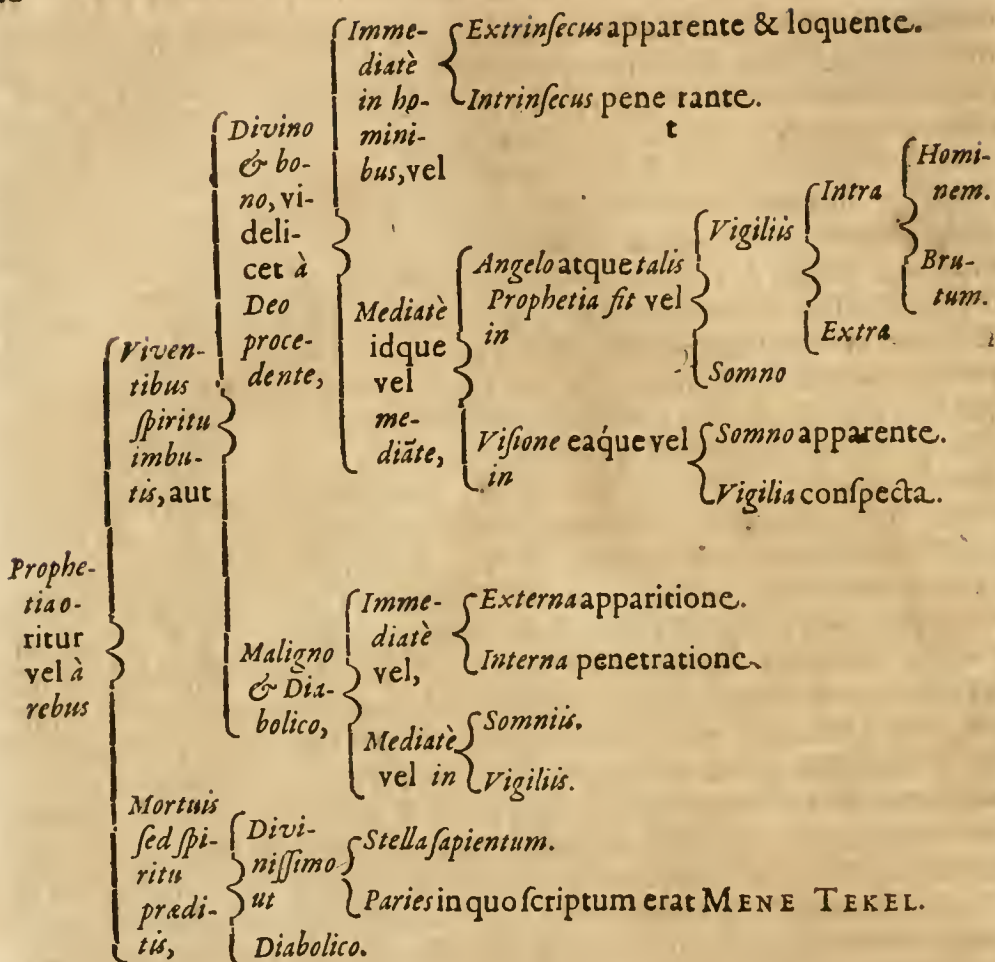 Prophe-
tia o-
ritur
vel à
rebus
Viven-
tibus
ſpiritu
imbu-
tis, aut
Divino
& bo-
no, vi-
deli-
cet à
Deo
proce-
dente,
Imme-
diatè
in ho-
mini-
bus, vel
Extrinſecus apparente & loquente.
Intrinſecus pene rante.
t
Mediatè
idque
vel
me-
diāte,
Angelo atque talis
Prophetia fit vel
in
Vigiliis
Intra
Homi-
nem.
Bru-
tum.
Extra
Somno
Viſione eáque vel
in
Somno apparente.
Vigilia conſpecta.
Maligno
& Dia-
bolico,
Imme-
diatè
vel,
Externa apparitione.
Interna penetratione
Mediatè
vel in
Somniis.
Vigiliis.
Mortuis
ſed ſpi-
ritu
prædi-
tis,
Divi-
niſſimo
ut
Stella ſapientum.
Paries in quo ſcriptum erat MENE TEKEL.
Diabolico.